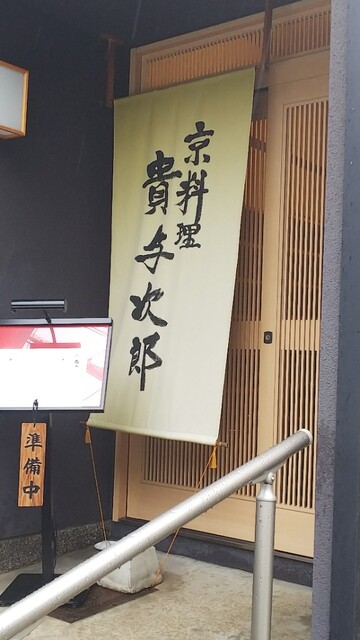 京料理
貴与次郎
準備中